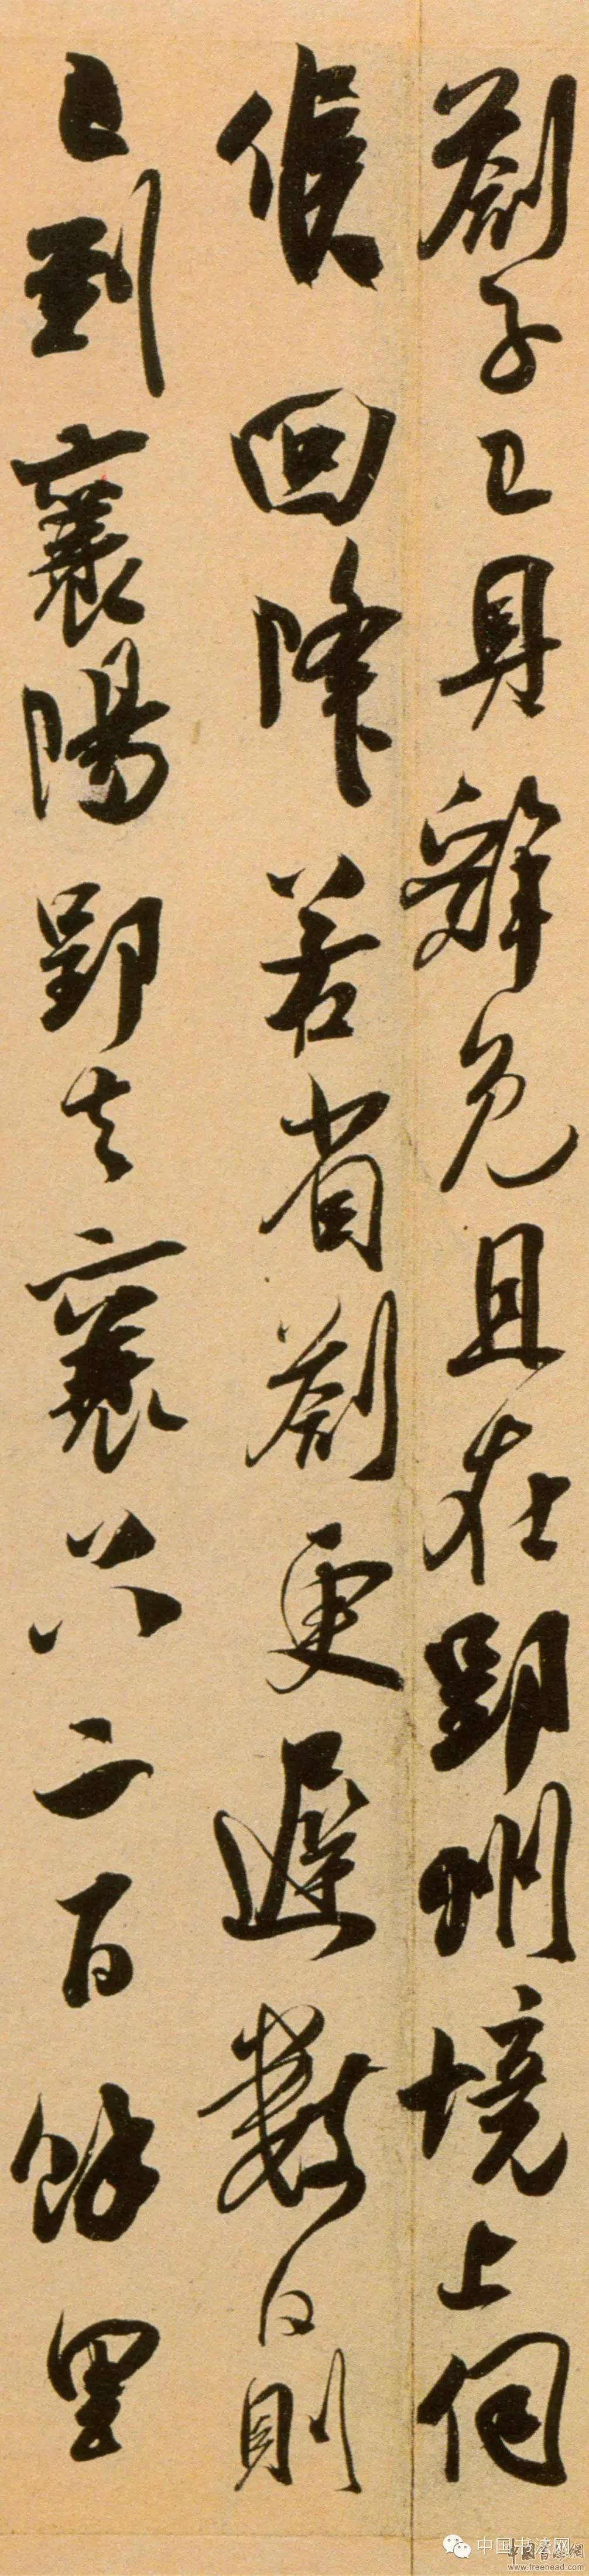 劄子已具辭免且在郢州境上伺
候回降若省劄更遲數日則
已到襄陽郢去襄只二百餘里
中国书法网
中國書法網
www.freehead.com